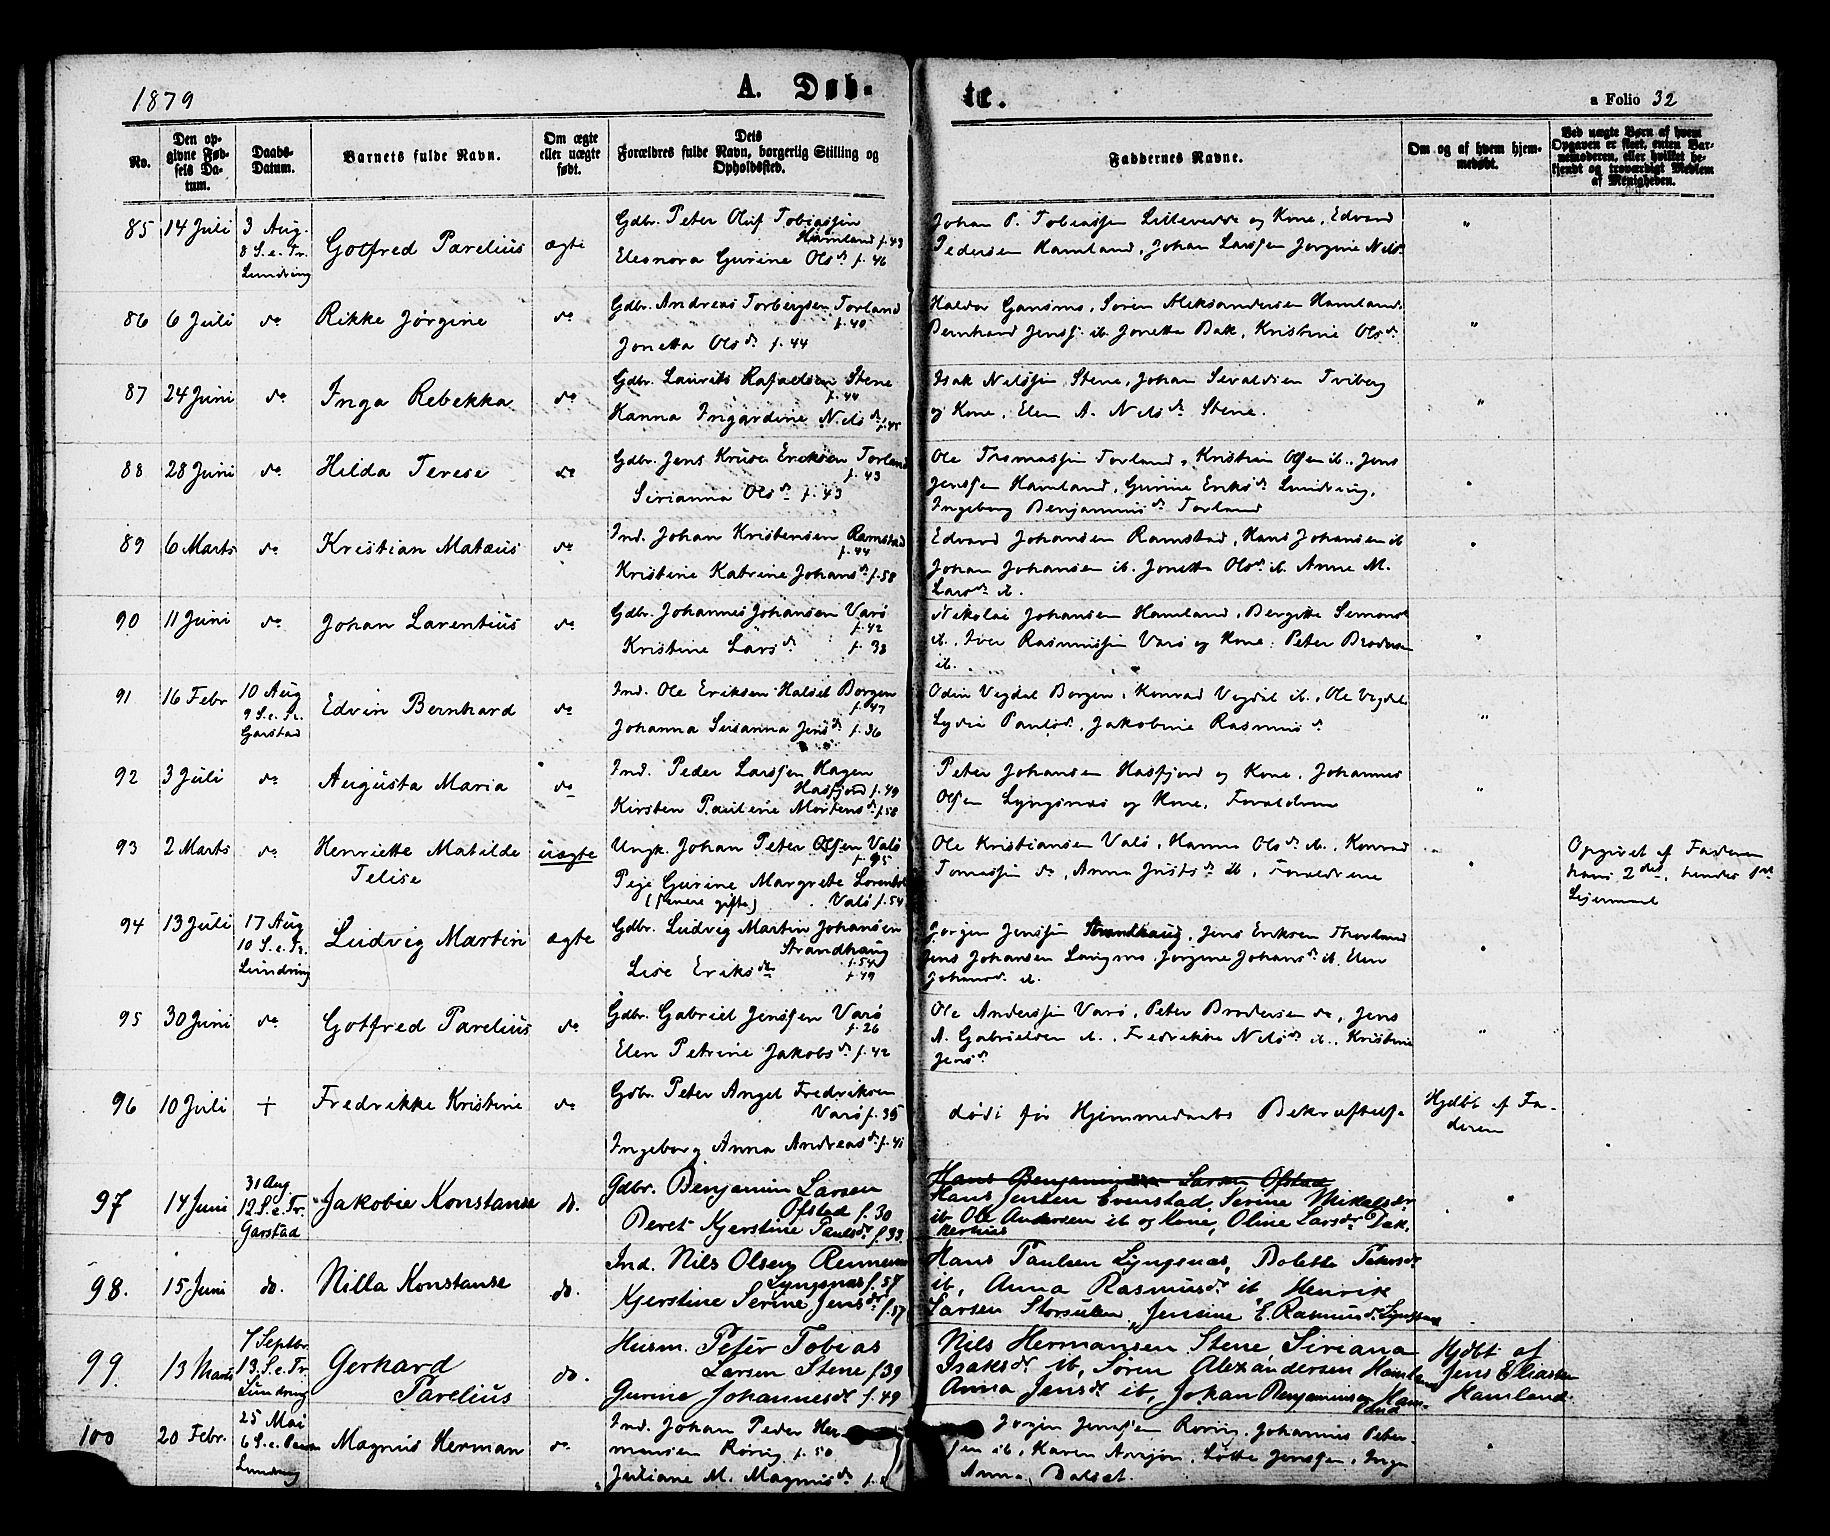 1879
A. Døb-
te.
a Folio 32
No.
Den op-
givne Fød-
sels Da-
tum.
Daabs-
Datum.
Barnets fulde Navn.
Om ægte
eller uægte
født.
Dets
Forældres fulde Navn, borgerlig Stilling og
Opholdssted.
Faddernes Navne.
Om og af hvem hjem-
medøbt.
Ved uægte Børn af hvem
Opgaven er skeet, enten Bar-
nemoderen, eller hvilket be-
kjendt og troværdigt Medlem
af Menigheden.
85
14 Juli
3 Aug.
8 S. e. Tr.
Lundring
Gotfred Parelius
ægte
Gdbr. Peter Oluf Tobiassen
Hamland f. 43
Eleonora Gurine Olsd. f. 46
Johan P. Tobiassen Lillevedde og Kone, Edvard
Pedersen Hamland, Johan Larssen Jørgine Nils
"
86
6 Juli
do
Rikke Jørgine
do
Gdbr. Andreas Torbergsen Torland
f. 40
Jonetta Olsd. f. 44
Haldor Gansmo, Søren Aleksandersen Hamland
Bernhard Jenss. ib. Jonetta Bak, Kristine Olsd.
"
87
24 Juni
do
Inga Rebekka
do
Gdbr. Laurits Rafaelsen Stene
f. 44
Hanna Ingardine Nilsd. f. 45
Isak Nilssen Stene, Johan Sivaldsen Tviberg
og Kone, Elen A. Nilsd. Stene.
"
88
28 Juni
do
Hilda Terese
do
Gdbr. Jens Kruse Eriksen Torland
f. 43
Sirianna Olsd. f. 43
Ole Thomassen Torland, Kristian Olsen ib., Jens
Jenssen Hamland, Gurine Eriksd. Lundring,
Ingeborg Benjaminsd. Torland
"
89
6 Marts
do
Kristian Matæus
do
Ind. Johan Kristensen Ramstad
f. 44
Kristine Katrine Johansd. f. 58
Edvard Johansen Ramstad, Hans Johansen ib
Johan Johansen ib. Jonetta Olsd. ib. Anne M.
Larsd. ib.
"
90
11 Juni
do
Johan Larentius
do
Gdbr. Johannes Johansen Varø
f. 42
Kristine Larsd. f. 38
Nikolai Johansen Hamland, Bergitte Simonsd
ib., Iver Rasmussen Varø og Kone, Peter Brodersen
ib.
"
91
16 Febr
10 Aug
9 S. e. Tr.
Garstad
Edvin Bernhard
do
Ind. Ole Eriksen Halset Borgen
f. 47
Johanna Susanna Jensd. f. 36
Odin Vegdal Borgen, Konrad Vegdal ib., Ole Vegdal
Lydia Paulsd., Jakobine Rasmusd
"
92
3 Juli
do
Augusta Maria
do
Ind. Peder Larssen Hagen
Hasfjord f. 49
Kirsten Pauline Mortensd. f. 58
Peter Johansen Hasfjord og Kone, Johannes
Olsen Lyngsnæs og Kone, Forældrene
"
93
2 Marts
do
Henriette Matilde
Telise
uægte
Ungk. Johan Peter Olsen Valø
f. 95
Pige Gurine Margrete Lorentsd.
(senere gifte) Valø f. 54
Ole Kristiansen Valø, Hanna Olsd. ib., Konrad
Tomassen do, Anna Justsd. ib, Forældrene
"
Opgivet af Faderen
hans 2det, hendes 1ste
Leiermaal
94
13 Juli
17 Aug
10 S. e. Tr.
Lundring
Ludvig Martin
ægte
Gdbr. Ludvig Martin Johansen
Strandhaug
f. 54
Lise Eriksd f. 49
Jørgen Jenssen Strandhaug, Jens Eriksen Thorland
Jens Johansen Langmo, Jørgine Johansd. ib. Elen
Johansd. ib.
"
95
30 Juni
do
Gotfred Parelius
do
Gdbr. Gabriel Jenssen Varø
f. 26
Elen Petrine Jakobsd. f. 42
Ole Anderssen Varø, Peter Brodersen do, Jens
A. Gabrielsen ib., Fredrikke Nilsd. ib., Kristine
Jensd.
"
96
10 Juli
+
Fredrikke Kristine
do
Gdbr. Peter Angel Fredriksen
Varø f. 35
Ingeborg Anna Andreasd. f. 41
døde før Hjemmedaabs Bekræftelse
Hjdbt af Fa-
deren
97
14 Juni
31 Aug
12 S. e. Tr.
Garstad
Jakobie Konstanse
do.
Gdbr. Benjamin Larsen
Ofstad f. 30
Beret Kjerstine Paulsdr. f. 33
Hans Benjaminsen Larsen Ofstad
Hans Jensen Evenstad, Serine Mikelsdr
ib. Ole Andersen ib og Kone, Oline Larsdr. Dak,
"
98.
15 Juni
do.
Nilla Konstanse
do.
Ind. Nils Olsen
Lyngsnæs f. 57
Kjerstine Serine Jensdr f. 57
Hans Paulsen Lyngsnæs, Dolette Petersdr
ib, Anna Rasmusdr. ib, Henrik
Larsen Storsulen, Jensine E. Rasmusdr. Lyngsnæs
99
13 Marts
7 Septbr.
13. S. e. Tr.
Lundring
Gerhard
Parelius
do.
Husm. Peter Tobias
Larsen Stene f. 39
Gurine Johannesdr. f. 49
Nils Hermansen Stene Siriana
Isaksdr. ib, Søren Alexandersen Hamland
Anna Jensdr ib, Johan Benjaminsen Ham-
land
Hjdbt af
Jens Eliassen
Hamland.
100
20 Febr.
25 Mai
Lundring
Magnus Herman
do
Ind. Johan Peder Her-
mansen Rørvig f. 50
Juliane M. Magnusd.
Jørgen Jenssen Rørvig, Johannes Peter-
sen ib, Karen Arnsen, Lotte Jenssen, Inger
Anna Dalset.
"